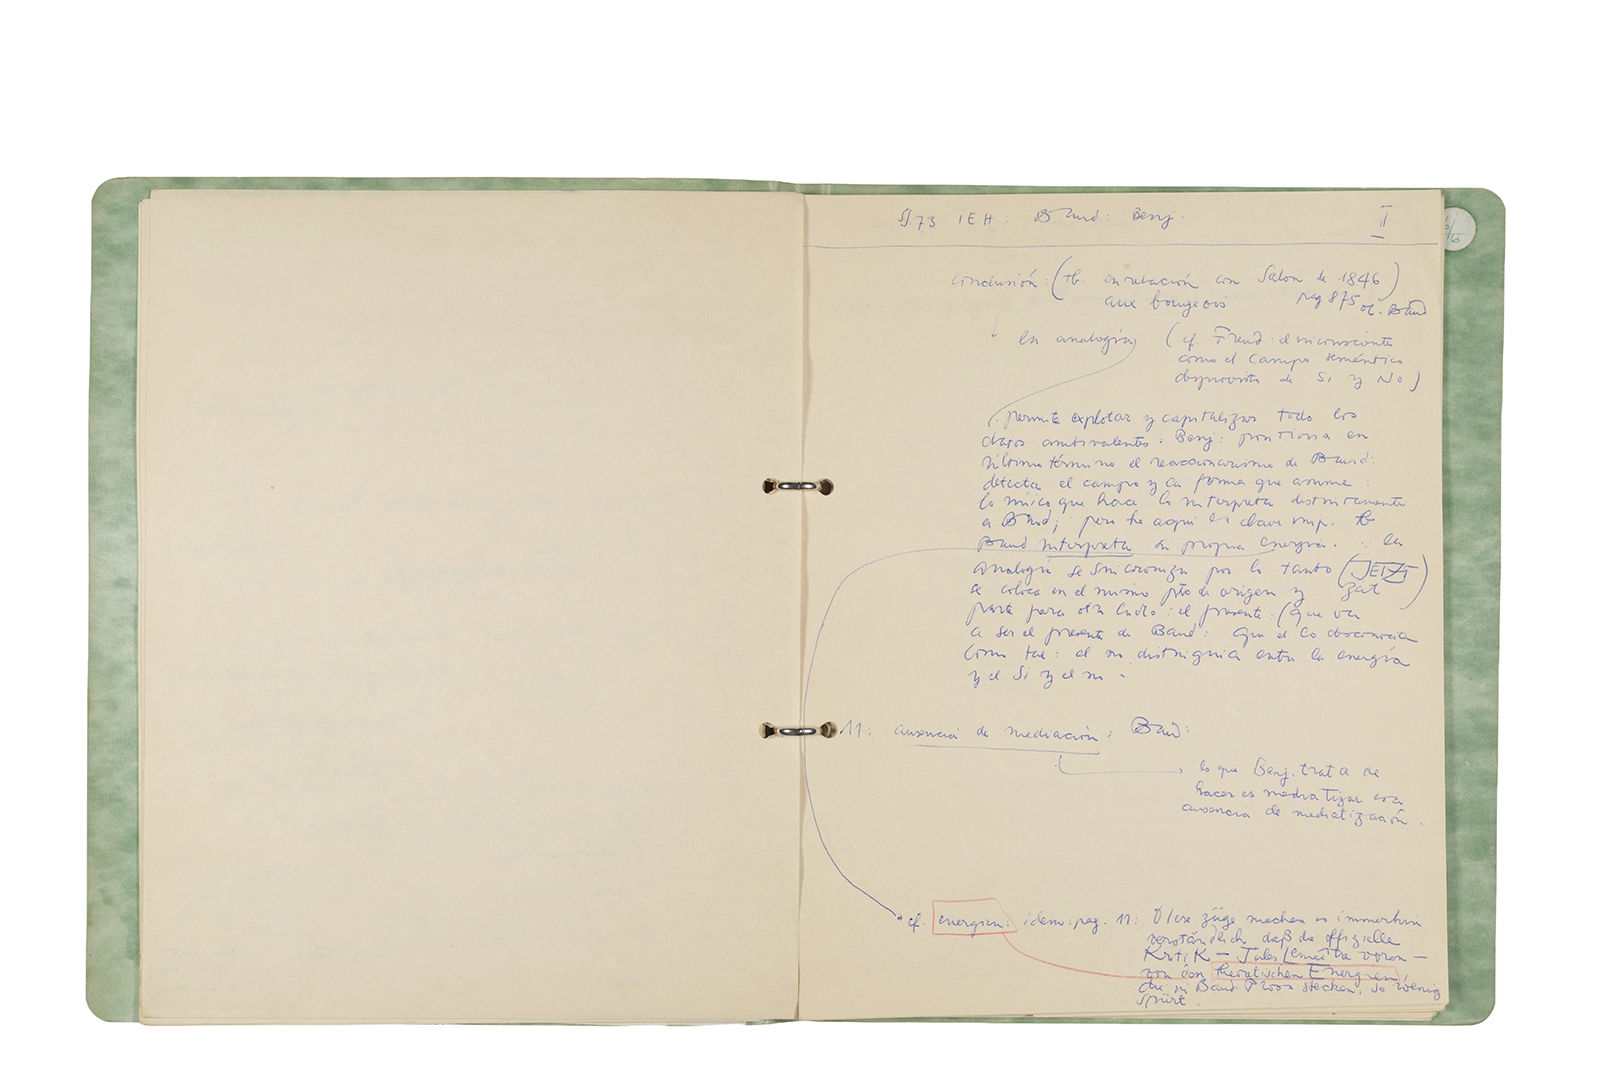 73 IEH: Baud: Benj. I
conclusión: (tb. en relación con Salon de 1846)
aux bourgeois pag 875 oc. Baud
la analogía (cf. Freud: el inconsciente
como el campo semántico
de Si y No)
permite explotar y capitalizar todo los
datos ambivalentes: Benj: positiviza en
último término el reaccionarismo de Baud:
detecta el campo y la forma que asume:
lo único que hace lo interpreta distintamente
a Baud; pero he aquí la clave imp. tb
Baud interpreta su propia energía. la
analogía se sincroniza por lo tanto (JETZT
se coloca en el mismo pto de origen y zeit)
parte para otro lado: el presente. (que va
a ser el presente de Baud: que el lo
como tal: el no distinguía entre la energía
y el Si y el no.
11: ausencia de mediación: Baud:
lo que Benj. trata de
hacer es mediatizar esa
ausencia de mediatización.
cf. energien: idem: pag. 11: Diese züge machen es immerhin
verständlich, daß die offizielle
Kritik – Jules Lemaître voran –
von den theoretischen Energien,
die in Baud. Prosa stecken, so wenig
spürt.